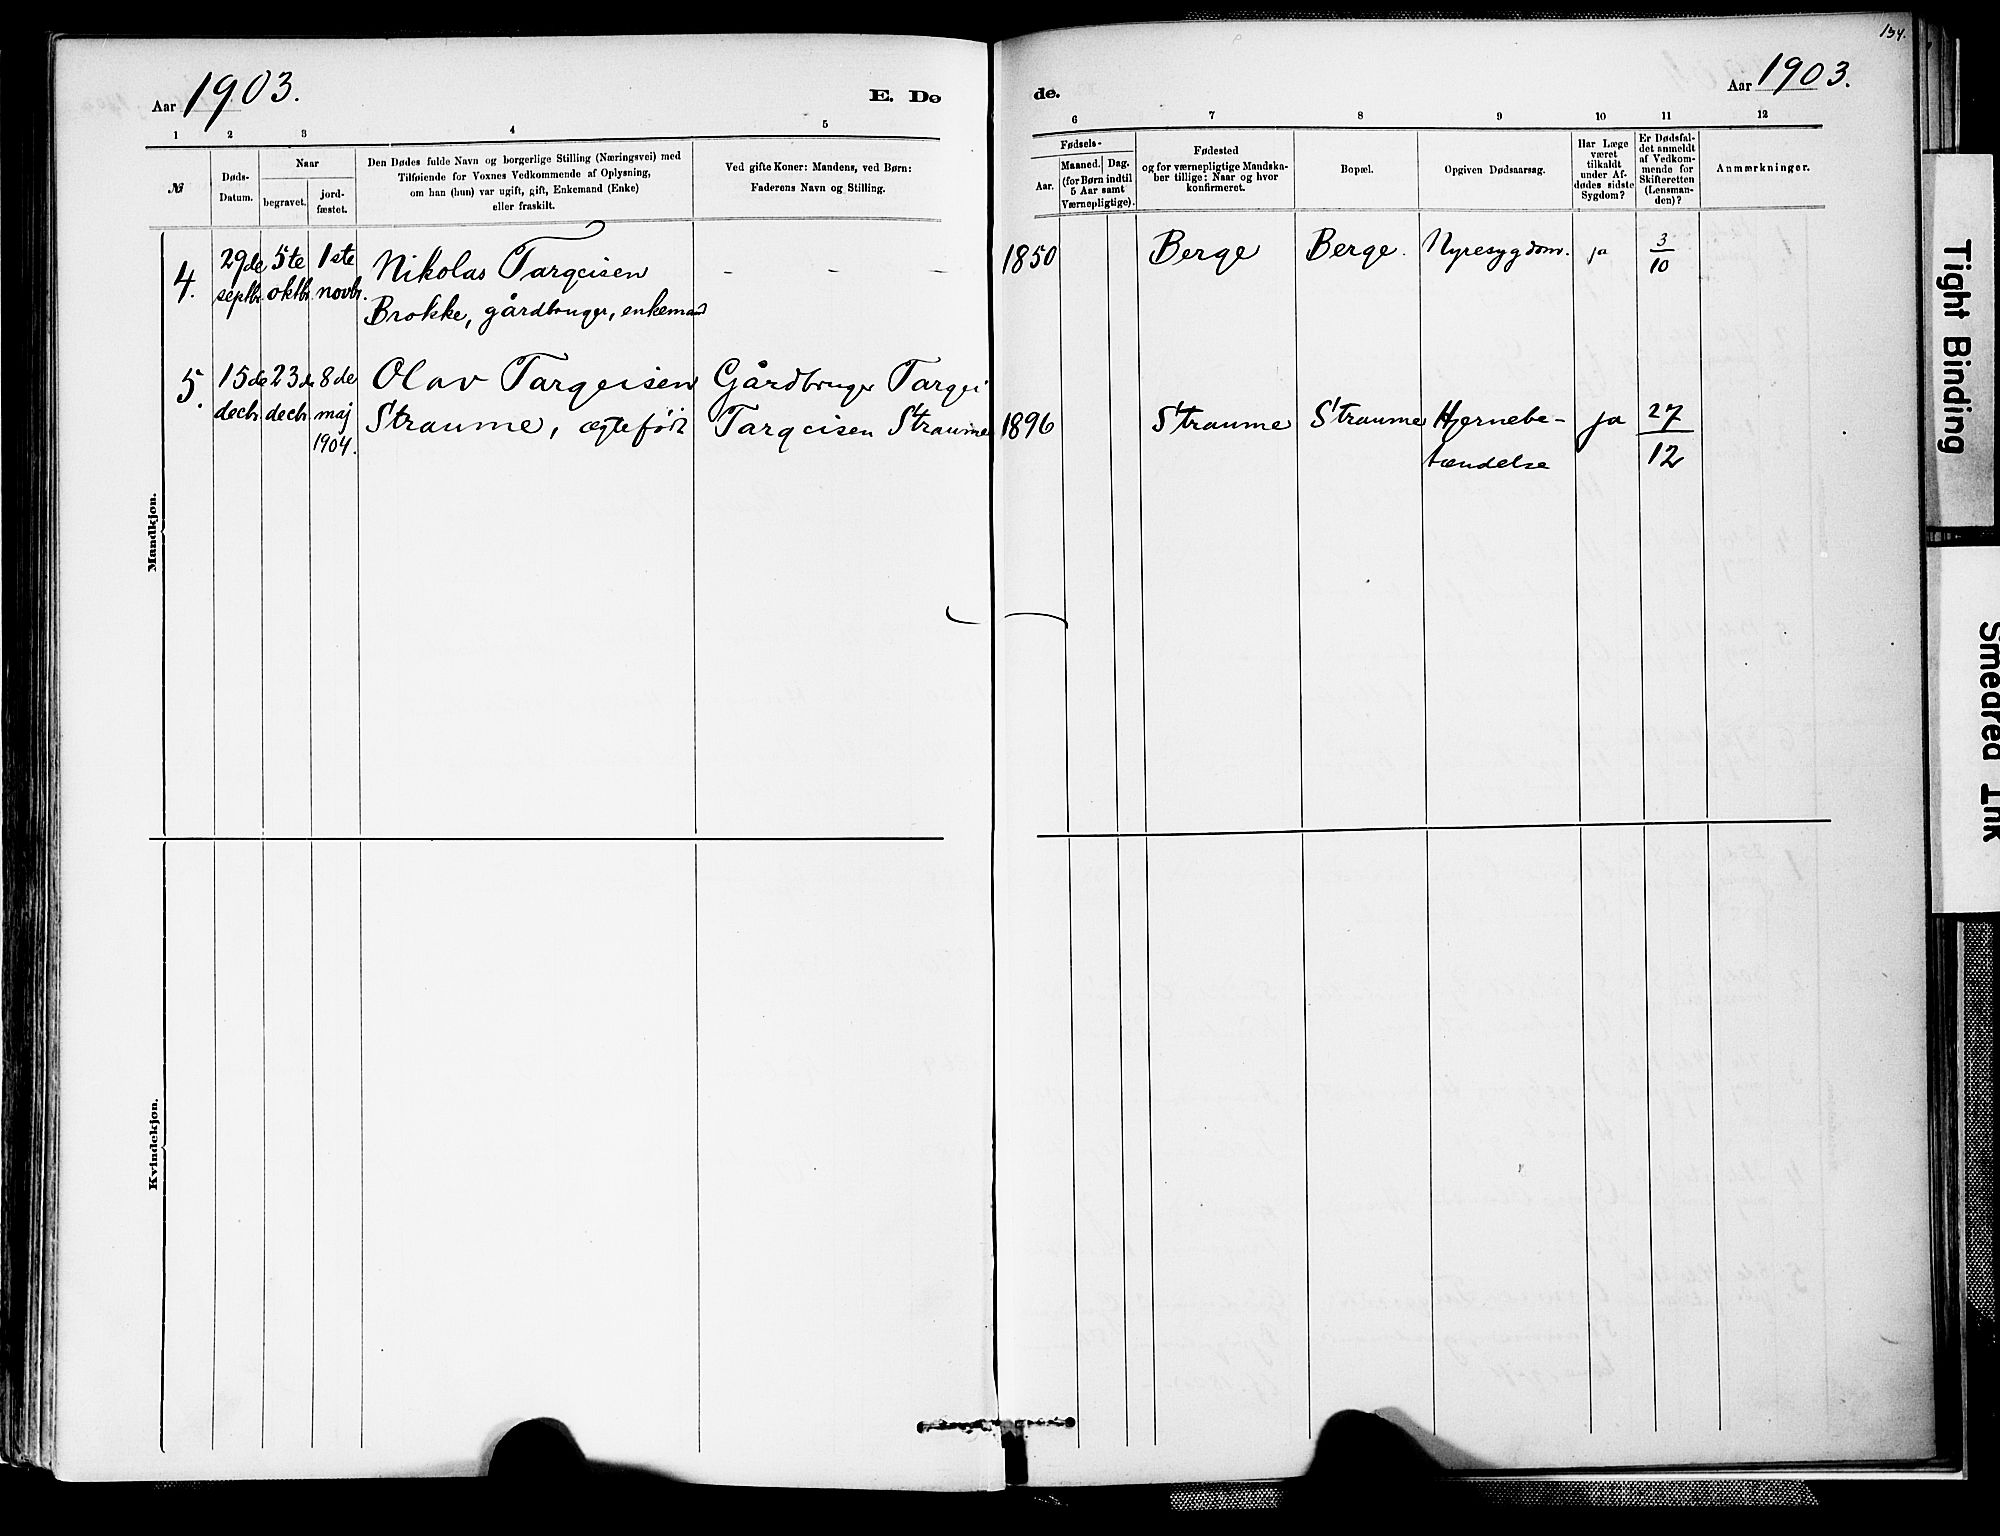 134.
Aar 1903.
E. Dø
de.
Aar 1903.
1 2 3 4 5 6 7 8 9 10 11 12
№
Døds-
Datum.
Naar
begravet.
jord-
fæstet.
Den Dødes fulde Navn og borgerlige Stilling (Næringsvei) med
Tilføiende for Voxnes Vedkommende af Oplysning,
om han (hun) var ugift, gift, Enkemand (Enke)
eller fraskilt.
Ved gifte Koner: Mandens, ved Børn:
Faderens Navn og Stilling.
Fødsels-
Aar.
Maaned. Dag.
(for Børn indtil
5 Aar samt
Værnepligtige).
Fødested
og for værnepligtige Mandska-
ber tillige: Naar og hvor
konfirmeret.
Bopæl.
Opgiven Dødsaarsag.
Har Læge
været
tilkaldt
under Af-
dødes sidste
Sygdom?
Er Dødsfal-
det anmeldt
af Vedkom-
mende for
Skifteretten
(Lensman-
den)?
Anmærkninger.
Mandkjøn.
4.
29de
septbr.
5te
oktbr.
1ste
novbr.
Nikolas Targeisen
Brokke, gårdbruger, enkemand
- - - -
1850
Berge
Berge.
Nyresygdom.
ja
3
10
5.
15de
decbr.
23de
decbr.
8de
maj
1904.
Olav Targeisen
Straume, ægtefødt
Gårdbruger Targei
Targeisen Straume
1896
Straume
Straume
Hjernebe-
tændelse
ja
27
12
Kvindekjøn.
Tight Binding
Smeared Ink